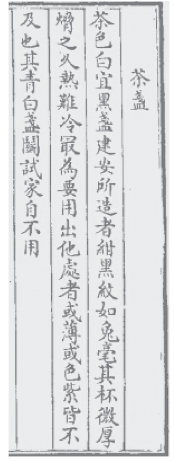 茶盞
茶色白宜黑盞建安所造者紺黑紋如兔毫其杯微厚
熁之久熱難冷最為要用出他處者或薄或色紫皆不
及也其青白盞鬭試家自不用